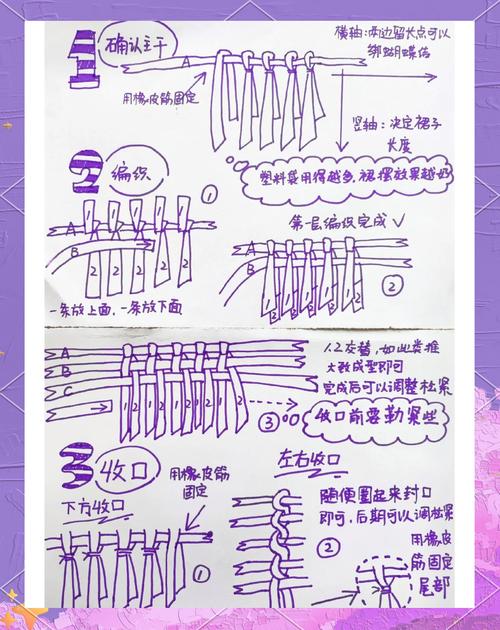 1
确认主干
横轴：两边留长点可以
绑蝴蝶结
A
用橡皮筋固定
竖轴：决定裙子
长度
塑料袋用得越多，裙摆效果越好
2
编织
①
A
B
2 2 2 2 2
一条放上面，一条放下面
第一层编织完成✓
A
B
1 2 1 2 1 2 1 2 1 2
②
A
B
C
1 2 1 2 1 2 1 2 1 2
③
1、2交替，如此类推
大致成型即可
完成后可以调整松紧
收口前要勒紧些
3
收口
用橡皮筋
固定
下方收口
①
左右收口
②
随便围起来封口
即可，后期可以调松紧
用橡皮
筋固定
尾部